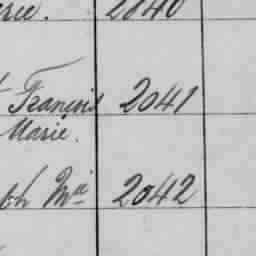 2040
François 2041
Marie.
ph Mie 2042